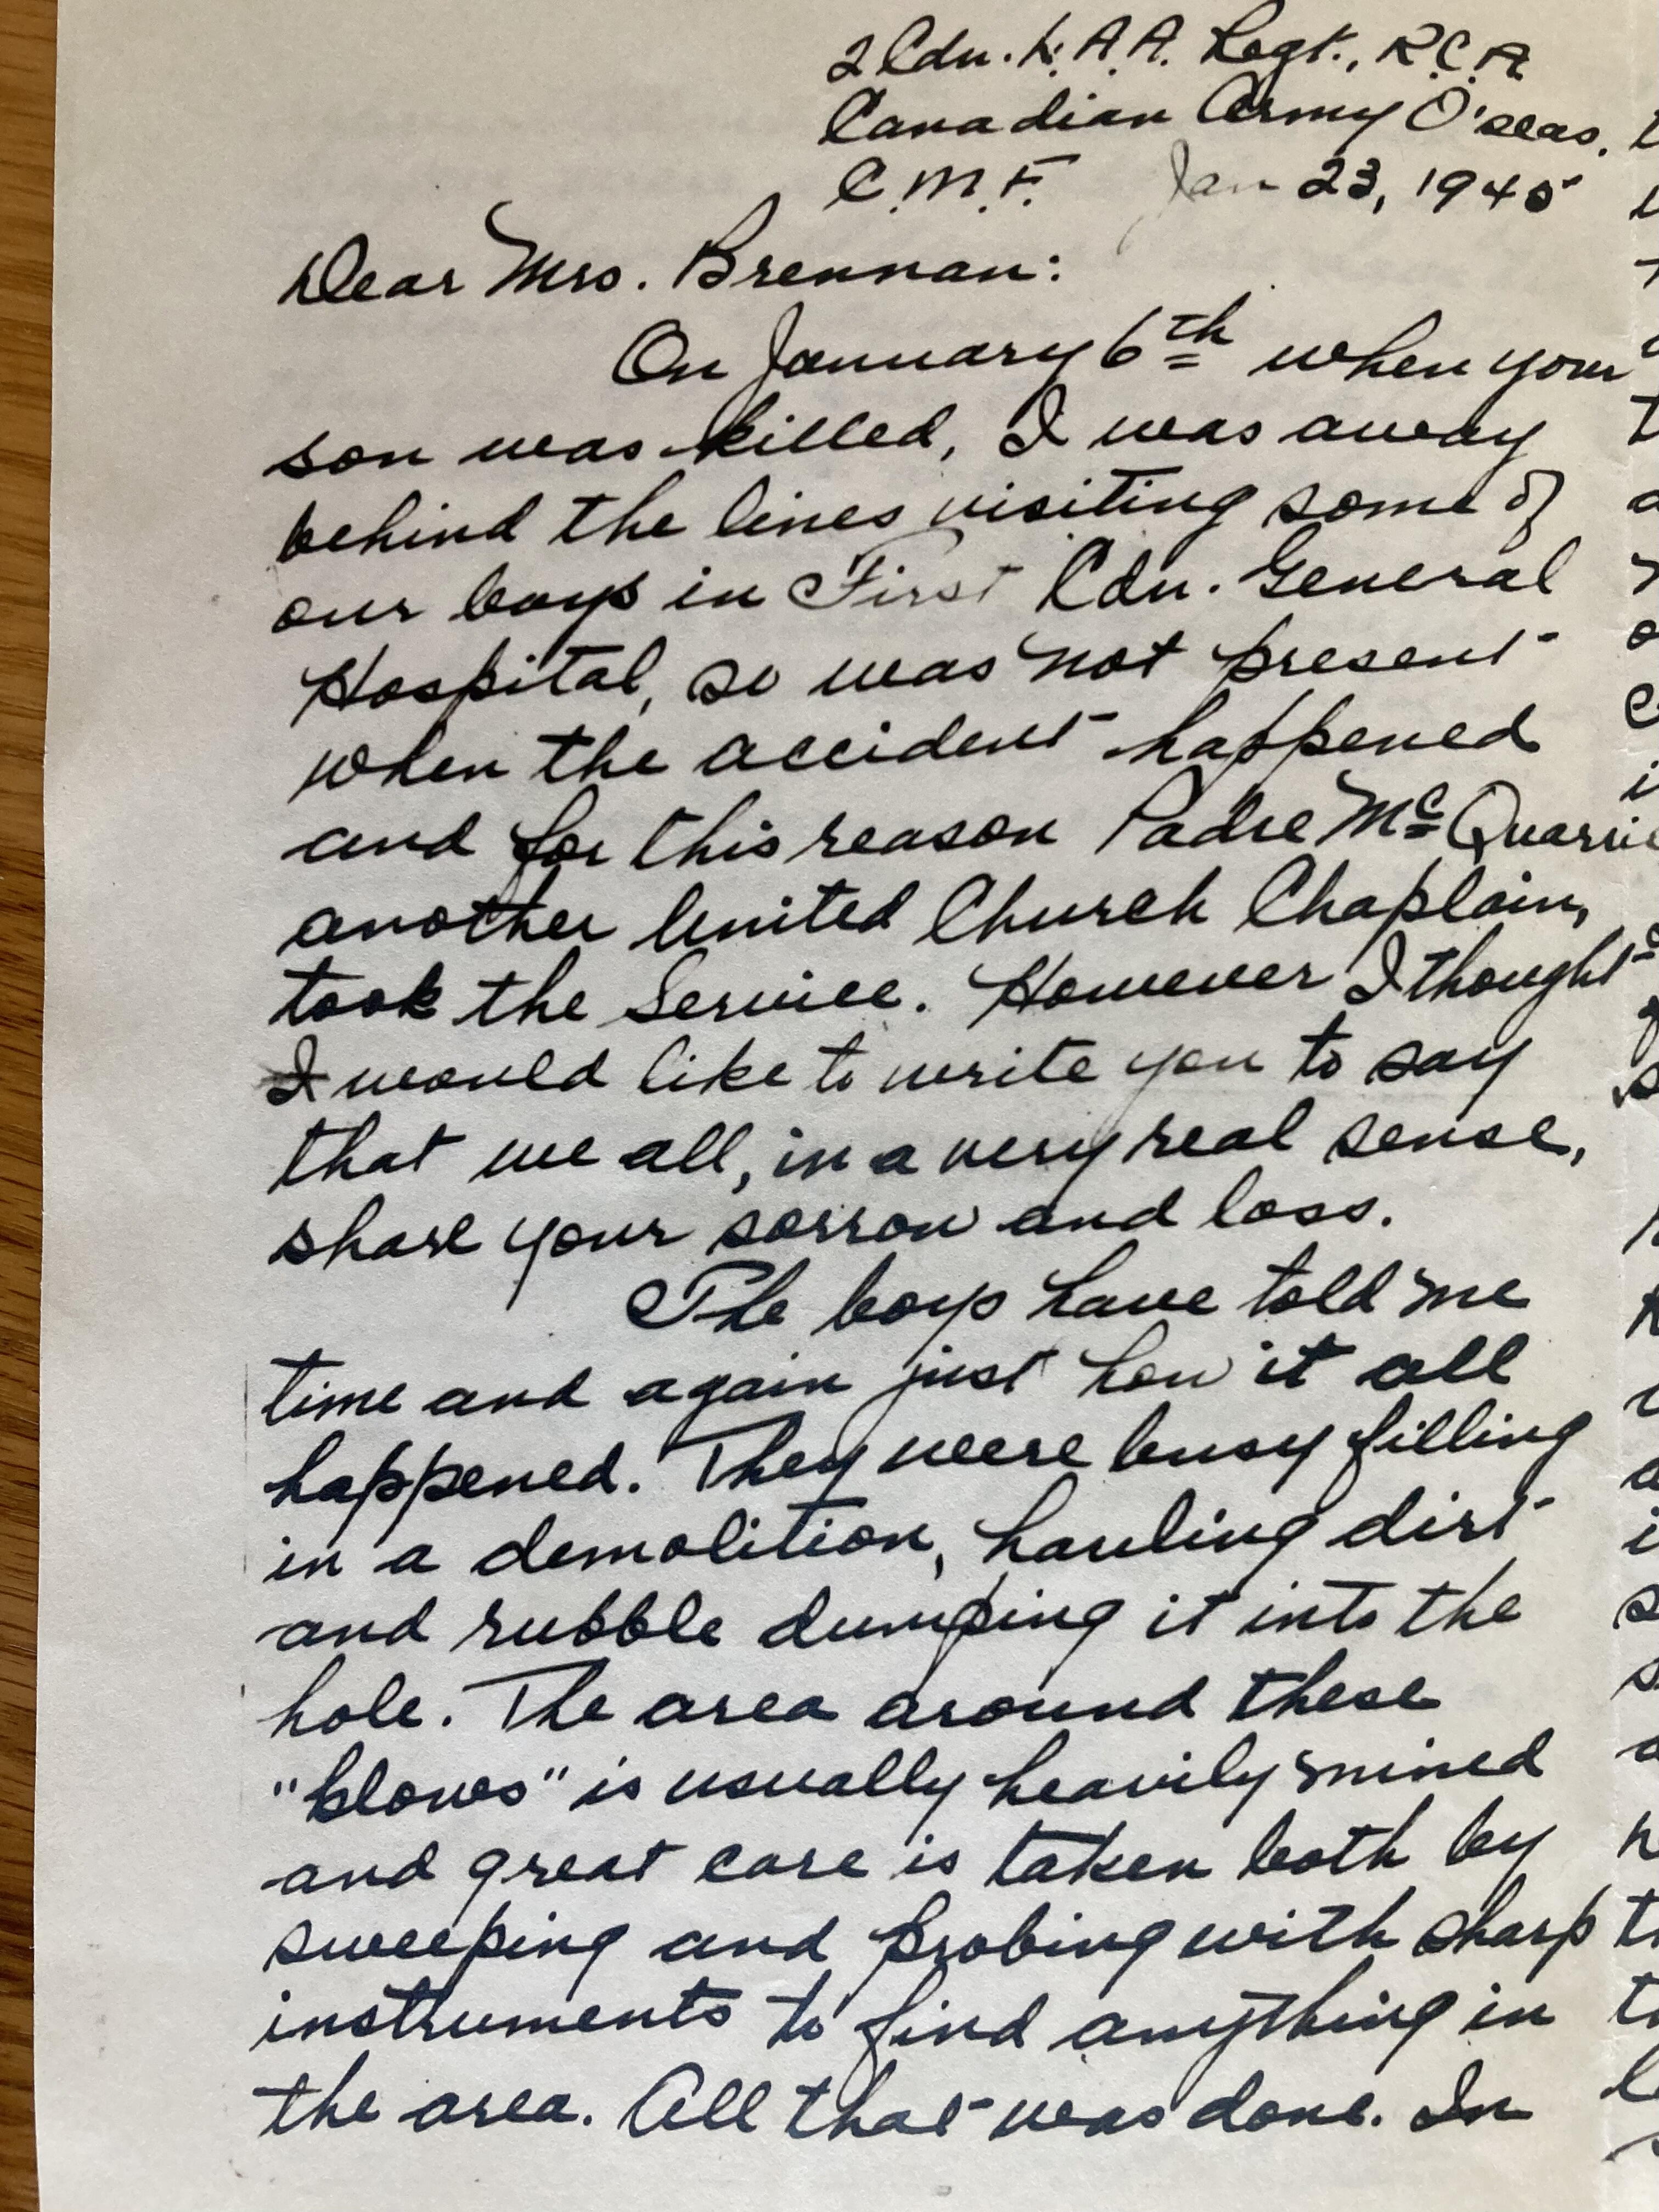 2 Cdn. H.A.A. Regt., R.C.A
Canadian Army O'seas.
C.M.F. Jan 23, 1945
Dear Mrs. Brennan:
On January 6th when your
son was killed, I was away
behind the lines visiting some of
our boys in First Cdn. General
Hospital, so was not present
when the accident happened
and for this reason Padre McQuarrie
another United Church Chaplain,
took the Service. However I thought
I would like to write you to say
that we all, in a very real sense,
share your sorrow and loss.
The boys have told me
time and again just how it all
happened. They were busy filling
in a demolition, hauling dirt
and rubble dumping it into the
hole. The area around these
"blows" is usually heavily mined
and great care is taken both by
sweeping and probing with sharp
instruments to find anything in
the area. All that was done. In